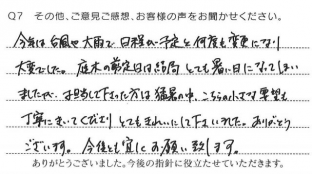 Q7 その他、ご意見ご感想、お客様の声をお聞かせください。
今年は台風や大雨で日程の予定を何度も変更になり
大変でした。庭木の剪定日は結局とても暑い日になってしまい
ましたが、お越して下さった方は猛暑の中、こちらの小さな要望も
丁寧にきいてくださりとてもきれいにして下さいました。ありがとう
ございます。今後とも宜しくお願い致します。
ありがとうございました。今後の指針に役立たせていただきます。